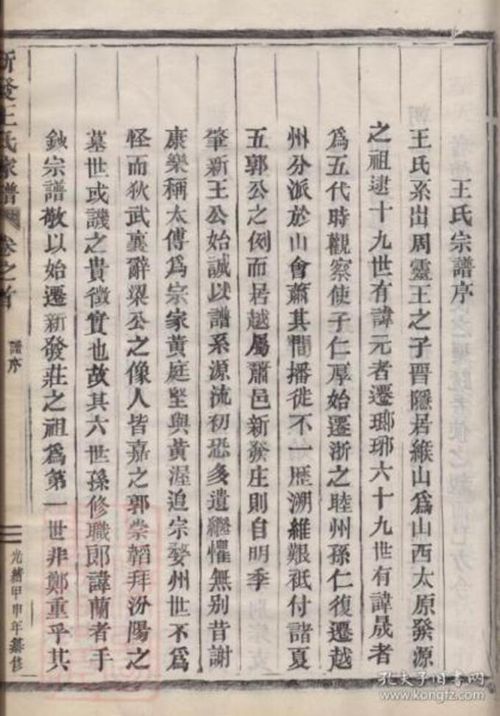 王氏宗譜序
王氏系出周靈王之子晉隱居緱山為山西太原發源
之祖逮十九世有諱元者遷瑯琊六十九世有諱晟者
為五代時觀察使子仁厚始遷浙之睦州孫仁復遷越
州分派於山會蕭其間播徙不一歷溯維艱祇付諸夏
五郭公之例而居越屬蕭邑新發庄則自明季
肇新王公始誠以譜系源流初恐多遺繼懼無別昔謝
康樂稱太傅為宗家黃庭堅與黃渥追宗婺州世不為
怪而狄武襄辭梁公之像人皆嘉之郭崇韜拜汾陽之
墓世或譏之貴徵實也故其六世孫修職郎諱蘭者手
鈔宗譜敬以始遷新發莊之祖為第一世非鄭重乎其
新發王氏家譜
卷之首
譜序
光緒甲申年纂修
孔夫子旧书网